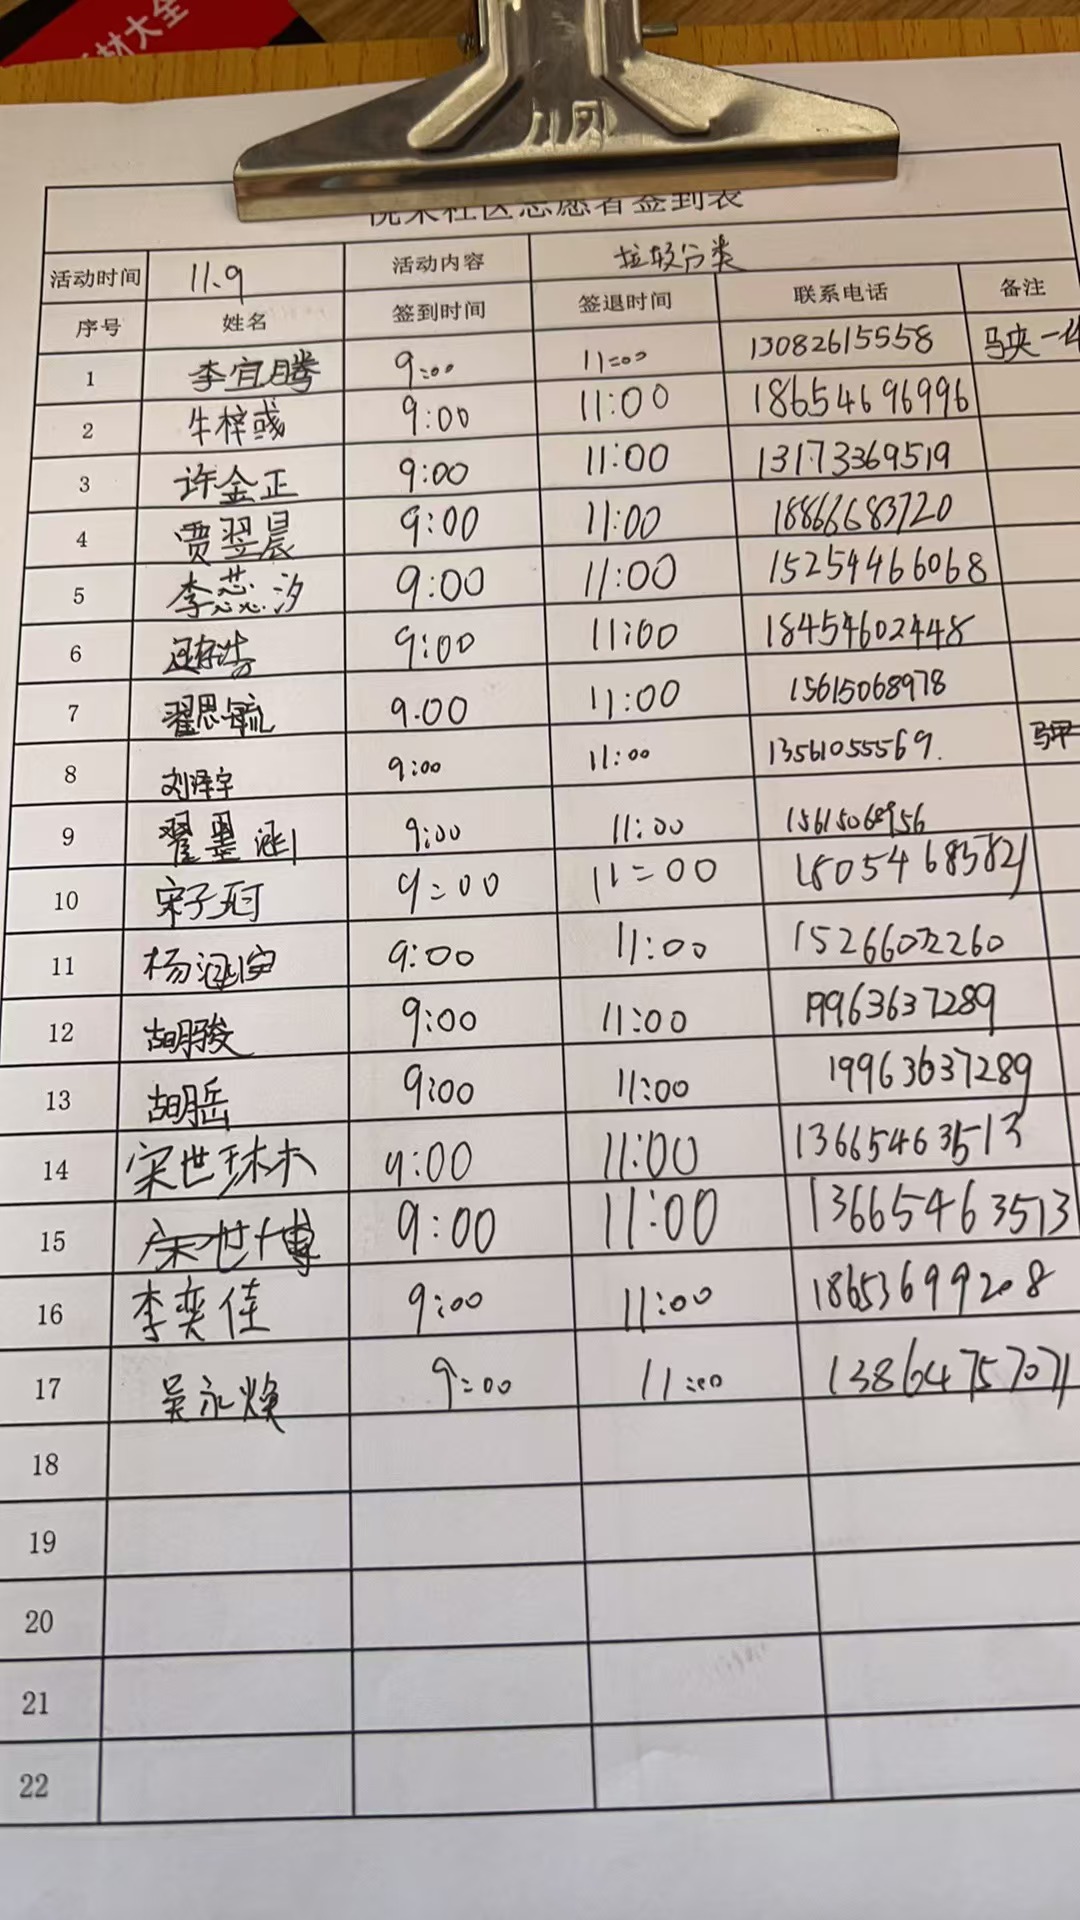 材大全
悦来社区志愿者签到表
活动时间 11.9 活动内容 垃圾分类
序号 姓名 签到时间 签退时间 联系电话 备注
1 李宜腾 9:00 11:00 13082615558 马夹一件
2 牛梓彧 9:00 11:00 18654696996
3 许金正 9:00 11:00 13173369519
4 贾翌晨 9:00 11:00 18866683720
5 李蕊汐 9:00 11:00 15254466068
6 9:00 11:00 18454602448
7 翟思毓 9.00 11:00 15615068978
8 刘泽宇 9:00 11:00 13561055569.
9 翟墨涵 9:00 11:00 15615068956
10 宋子珂 9:00 11:00 18054685821
11 杨涵 9:00 11:00 15266072260
12 胡明骏 9:00 11:00 19963637289
13 胡明岳 9:00 11:00 19963637289
14 宋世琳 9:00 11:00 13665463513
15 宋世博 9:00 11:00 13665463513
16 李奕佳 9:00 11:00 18653699208
17 吴永焕 9:00 11:00 13864757071
18
19
20
21
22